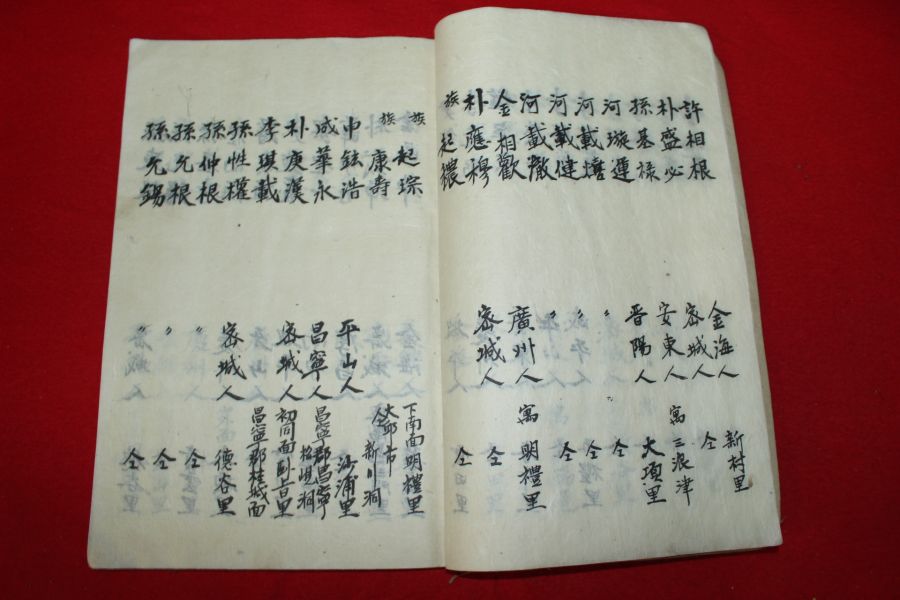 許相根 金海人 新村里
朴盛必 密城人 仝
孫基祿 安東人 寓三浪津
河璇運 晋陽人 大項里
河載熺 〃 仝
河載健 〃 仝
河載澈 〃 仝
金相歡 廣州人 寓明禮里
朴應穆 密城人 仝
族起穠 仝
族起琮 下南面明禮里
族康壽 大邱市新川洞
申鉉浩 平山人 沙浦里
成華永 昌寧人 昌寧郡昌寧
朴庚漢 密城人 初同面
李琪載 昌寧郡桂城面
孫性權 密城人 德谷里
孫仲根 〃 仝
孫允根 〃 仝
孫允錫 〃 仝